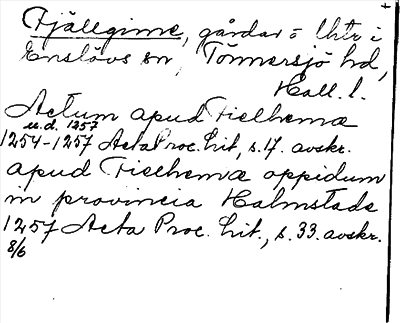 Fjällgime, gårdar = Uhtr i
Enslövs sn, Tönnersjö hd,
Hall. l.
Actum apud Fielhemæ
u.d. 1257
1254-1257 Acta Proc. lit, s.17. avskr.
apud Fielhemæ oppidum
in provincia Halmstads
1257 Acta Proc. lit., s.33. avskr.
8/6